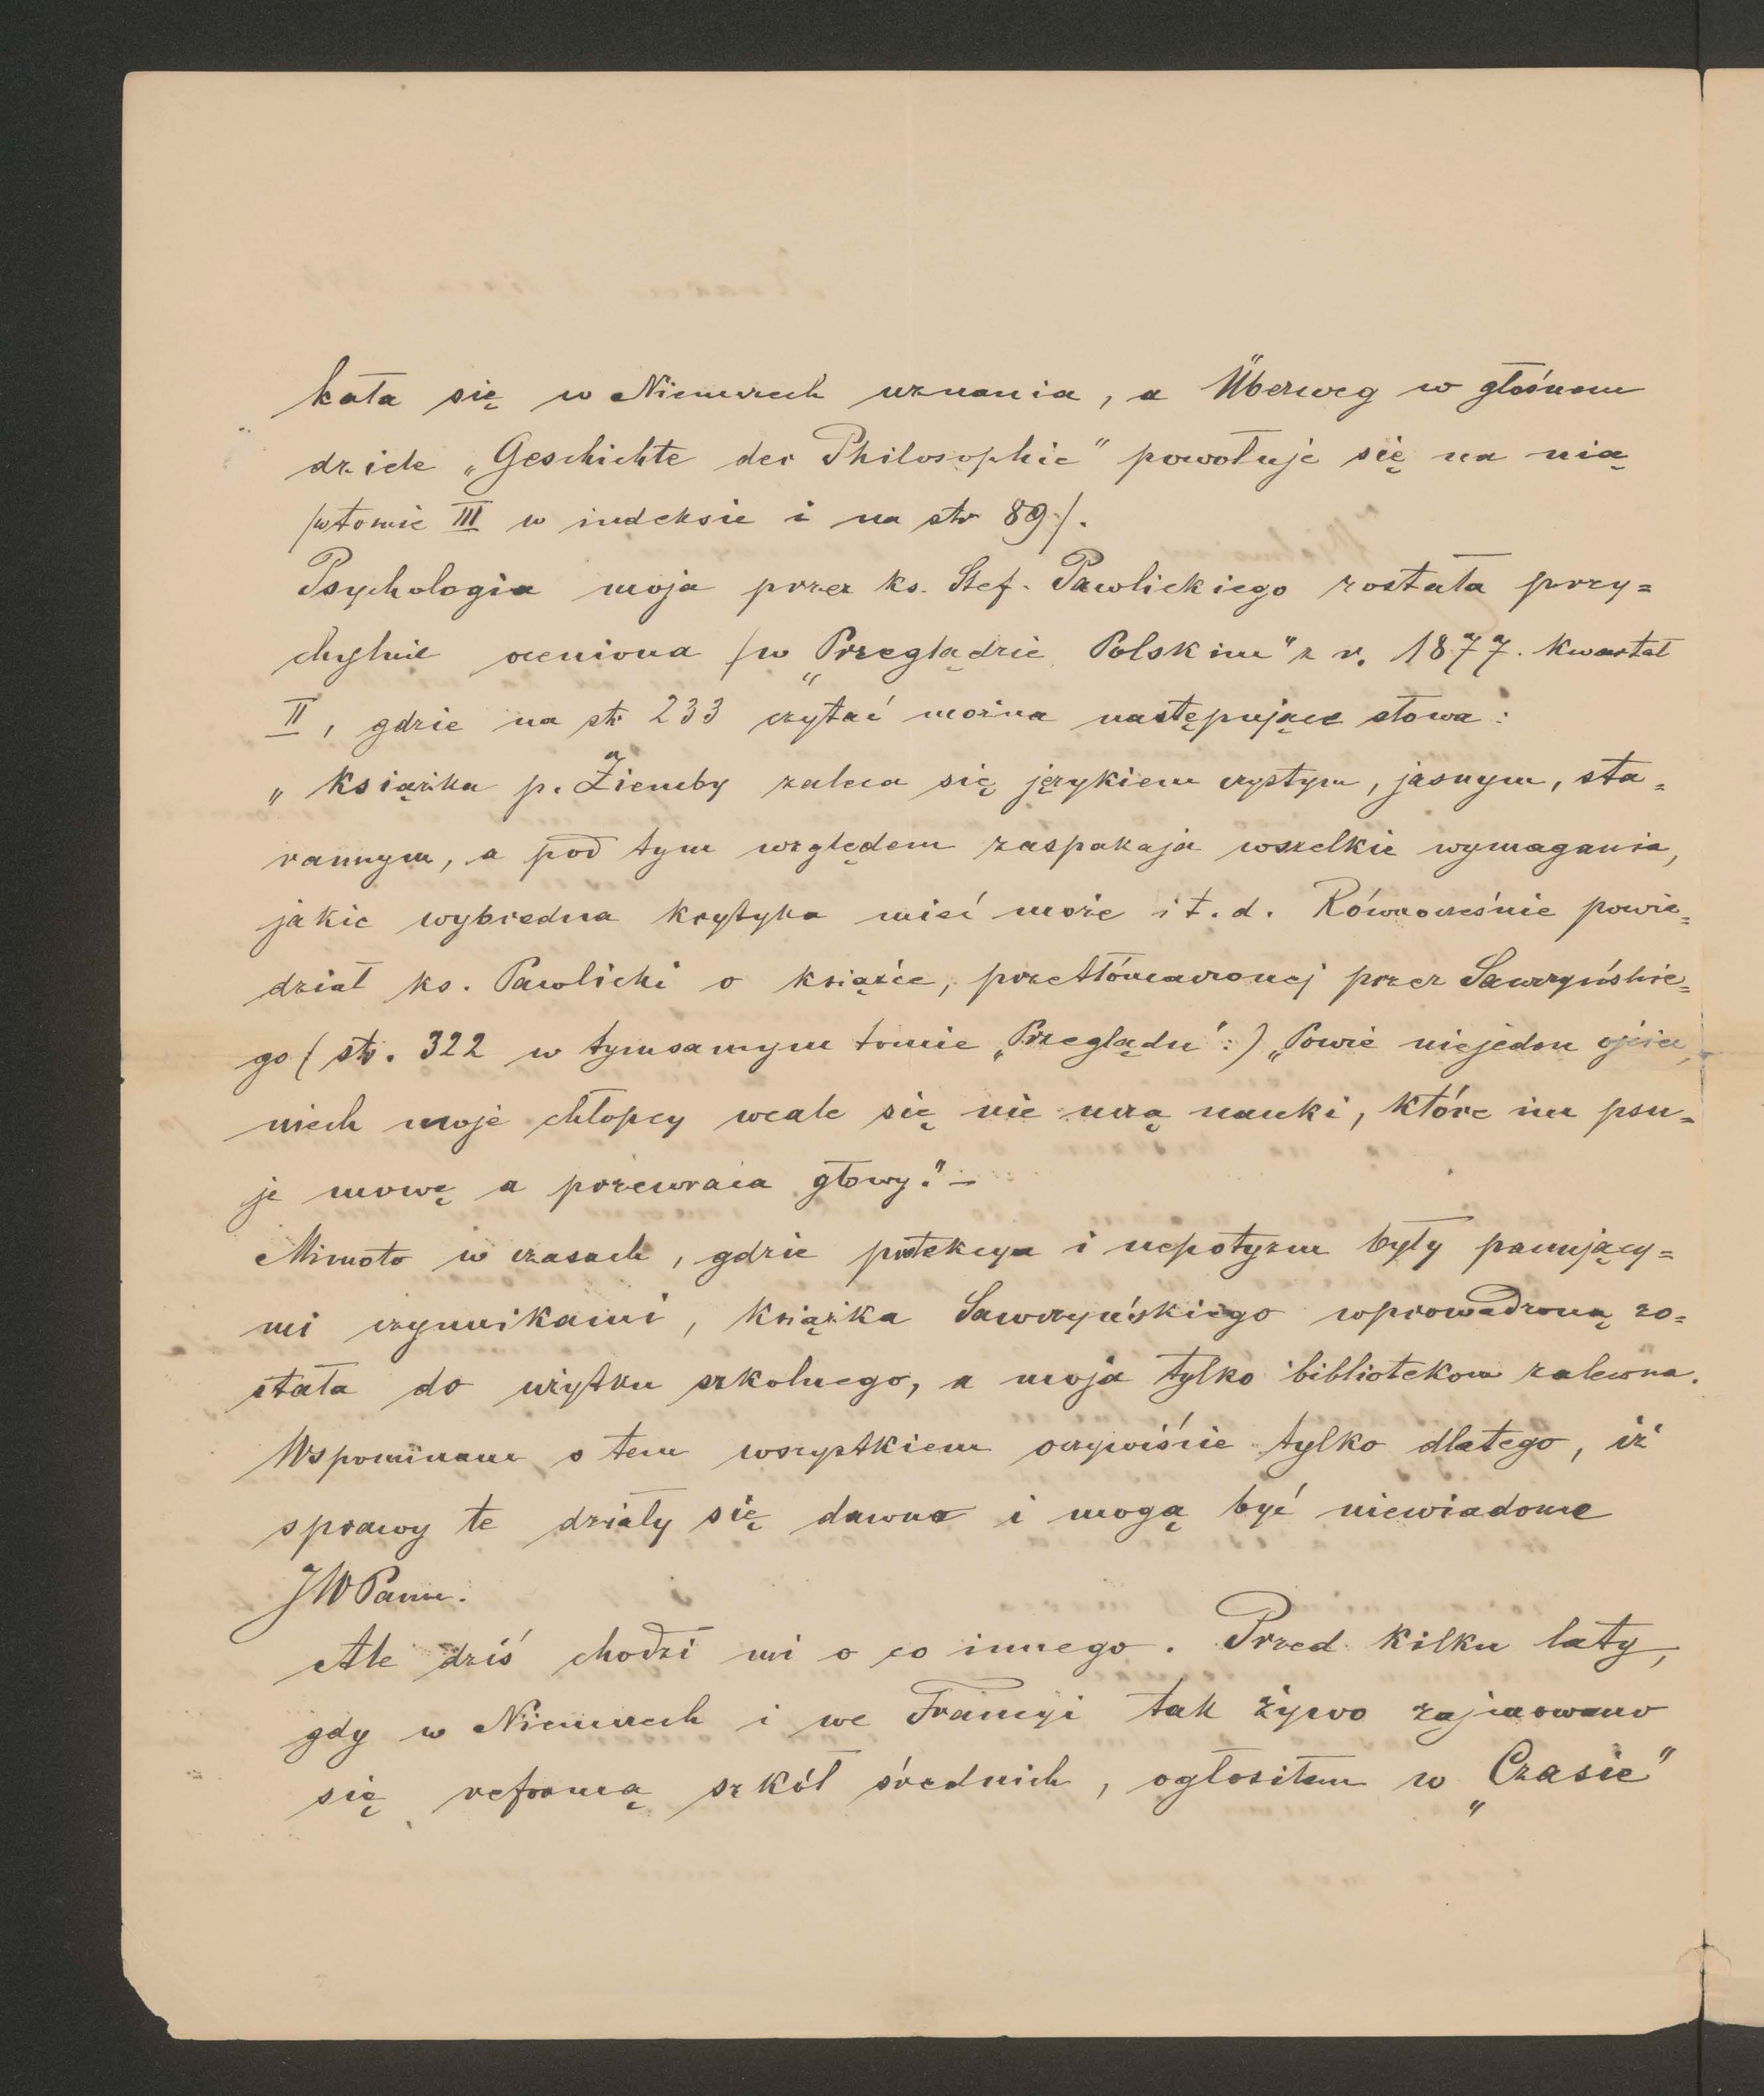 kała się w Niemczech uznania, a Überweg w głośnem
dziele „Geschichte der Philosophie" powołuje się na nią
/w tomie III w indeksie i na str 89/.
Psychologia moja przez ks. Stef. Pawlickiego została przy=
chylnie oceniona /w „Przeglądzie Polskim" z r. 1877. Kwartał
II, gdzie na str 233 czytać można następujące słowa:
„książka p. Ziemby zaleca się językiem czystym, jasnym, sta=
rannym, a pod tym względem zaspakaja wszelkie wymagania,
jakie wybredna krytyka mieć może i t. d. Równocześnie powie=
dział ks. Pawlicki o książce, przetłómaczonej przez Sawczyńskie=
go (str. 322 w tymsamym tomie „Przeglądu":) „Powie niejeden ojciec,
niech moje chłopcy wcale się nie uczą nauki, które im psu=
je mowę a przewraca głowy." –
Mimoto w czasach, gdzie protekcya i nepotyzm były panujący=
mi czynnikami, książka Sawczyńskiego wprowadzoną zo=
stała do użytku szkolnego, a moja tylko bibliotekom zalecona.
Wspominam o tem wszystkiem oczywiście tylko dlatego, iż
sprawy te działy się dawno i mogą być niewiadome
JWPanu.
Ale dziś chodzi mi o co innego. Przed kilku laty,
gdy w Niemczech i we Francyi tak żywo zajmowano
się reformą szkół średnich, ogłosiłem w „Czasie"